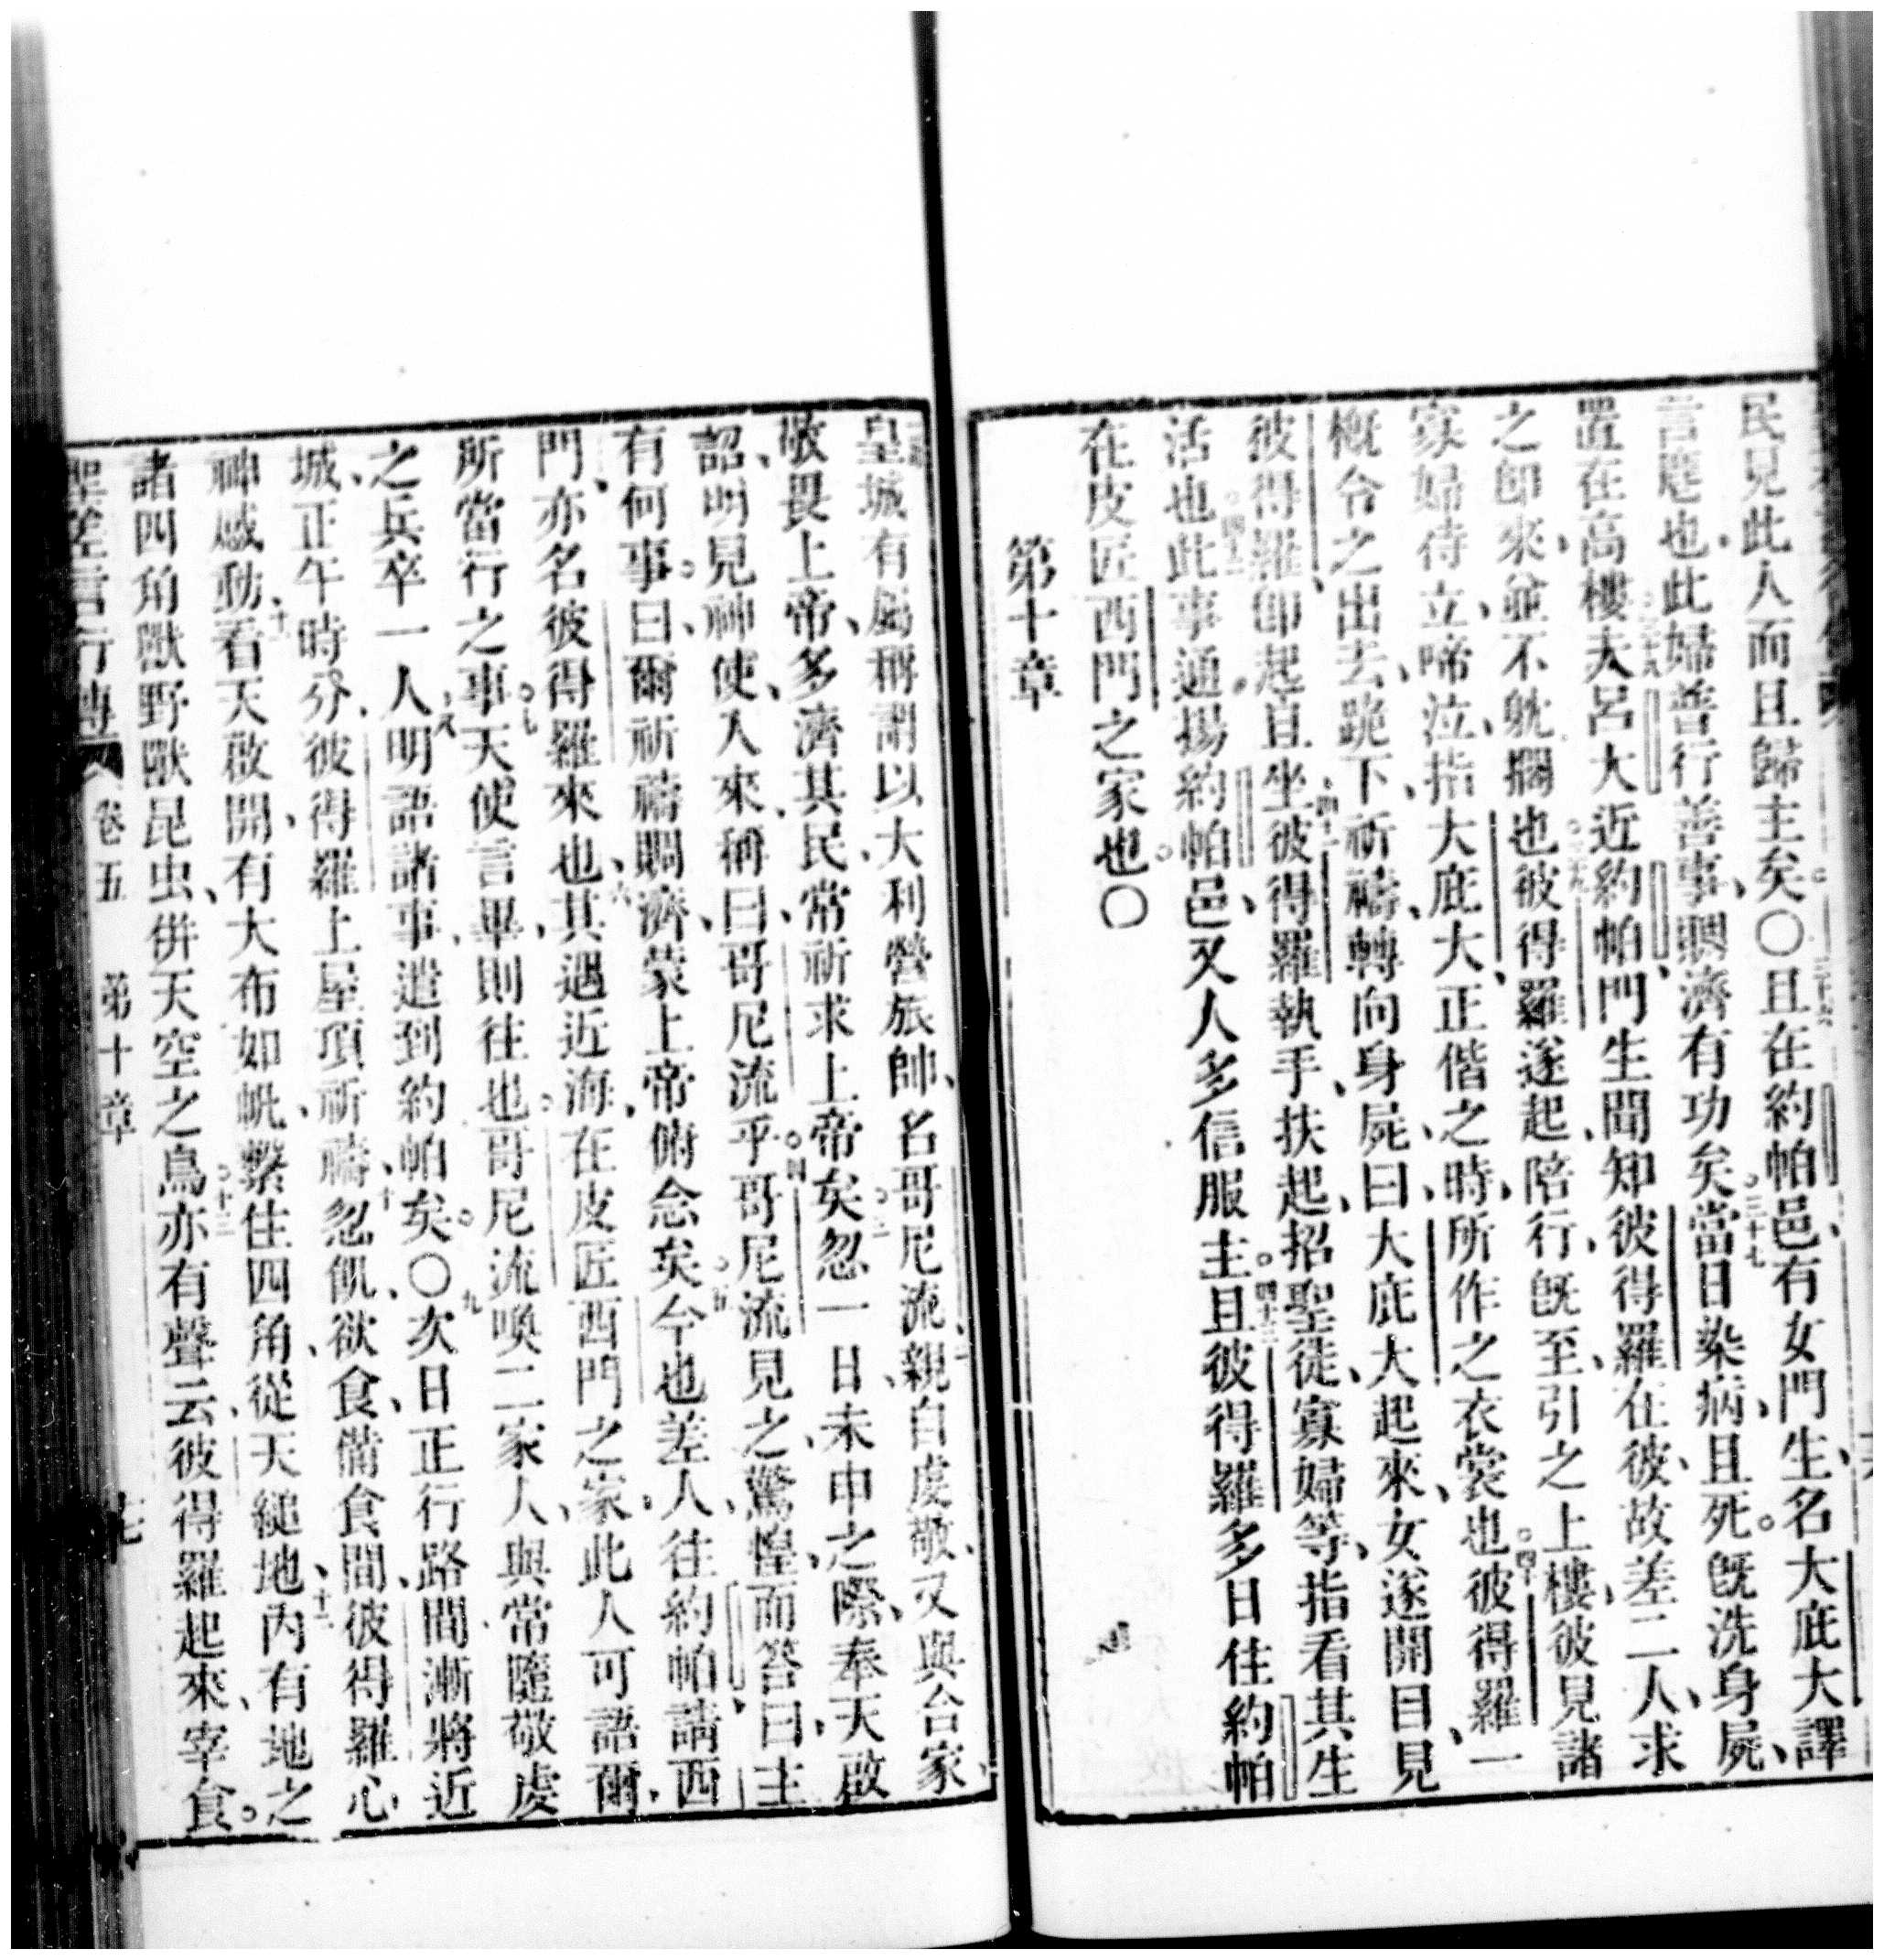 民見此人而且歸主矣〇三十六且在約帕邑有女門生名大庇大譯
言麀也此婦普行善事賙濟有功矣三十七當日染病且死既洗身屍
置在高樓三十八夫呂大近約帕門生聞知彼得羅在彼故差二人求
之卽來並不躭擱也三十九彼得羅遂起陪行既至引之上樓彼見諸
寡婦侍立啼泣指大庇大正偕之時所作之衣裳也四十彼得羅一
概令之出去跪下祈禱轉向身屍曰大庇大起來女遂開目見
彼得羅卽起且坐四十一彼得羅執手扶起招聖徒寡婦等指看其生
活也四十二此事通揚約帕邑又人多信服主四十三且彼得羅多日住約帕
在皮匠西門之家也〇
第十章
皇城有屬稱謂以大利營旅帥名哥尼流二親自虔敬又與合家
敬畏上帝多濟其民常祈求上帝矣三忽一日未申之際奉天啟
詔明見神使入來稱曰哥尼流乎四哥尼流見之驚惶而答曰主
有何事曰爾祈禱賙濟蒙上帝俯念矣五今也差人往約帕請西
門亦名彼得羅來也六其過近海在皮匠西門之家此人可語爾
所當行之事七天使言畢則往也哥尼流喚二家人與常隨敬虔
之兵卒一人八明語諸事遣到約帕矣〇九次日正行路間漸將近
城正午時分彼得羅上屋頂祈禱十忽飢欲食備食間彼得羅心
神感動十一看天啟開有大布如帆繫住四角從天縋地十二內有地之
諸四角獸野獸昆虫併天空之鳥十三亦有聲云彼得羅起來宰食
聖差言行傳 卷五 第十章 七